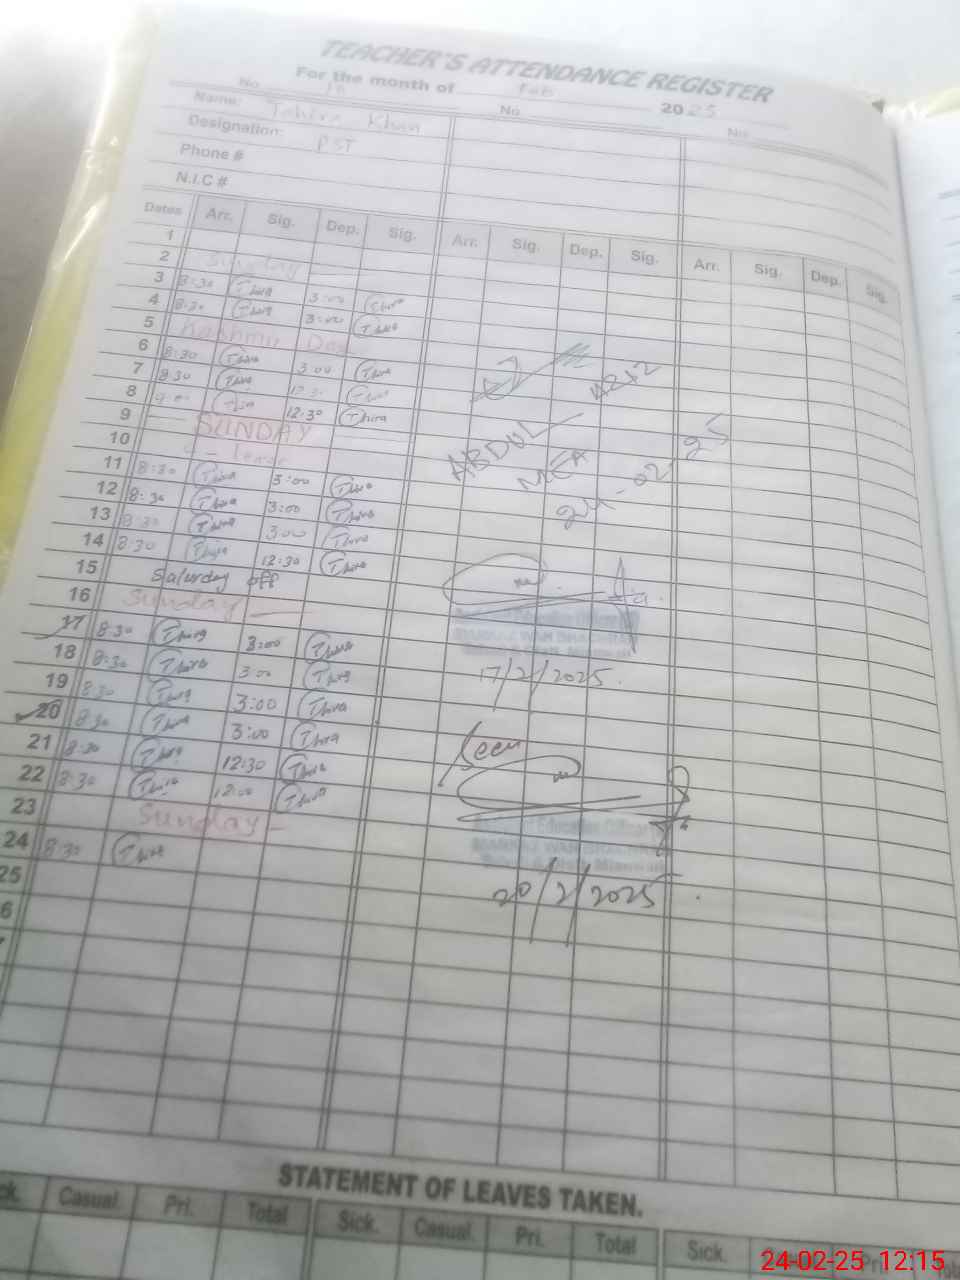 TEACHER'S ATTENDANCE REGISTER
For the month of Feb 2025
No. No. No.
Name: Tahira Khan
Designation: PST
Phone #
N.I.C #
Dates Arr. Sig. Dep. Sig. Arr. Sig. Dep. Sig. Arr. Sig. Dep. Sig.
1
2 Sunday
3 8:30 Thira 3:00 Thira
4 8:30 Thira 3:00 Thira
5 Kashmir Day
6 8:30 Thira 3:00 Thira
7 8:30 Thira 12:30 Thira
8 9:00 Thira 12:30 Thira
9 SUNDAY
10 C- leave
11 8:30 Thira 3:00 Thira
12 8:30 Thira 3:00 Thira
13 8:30 Thira 3:00 Thira
14 8:30 Thira 12:30 Thira
15 Saturday off
16 Sunday
17 8:30 Thira 3:00 Thira
18 8:30 Thira 3:00 Thira
19 8:30 Thira 3:00 Thira
20 8:30 Thira 3:00 Thira
21 8:30 Thira 12:30 Thira
22 8:30 Thira 12:00 Thira
23 Sunday
24 8:30 Thira
25
6
7
ABDUL
MEA
24-02-25
Education Officer
MARKAZ WAN BHACHRAN
17/2/2025.
Seen
Education Officer
MARKAZ WAN BHACHRAN
20/2/2025.
STATEMENT OF LEAVES TAKEN.
ck. Casual. Pri. Total Sick. Casual. Pri. Total Sick.
24-02-25 12:15